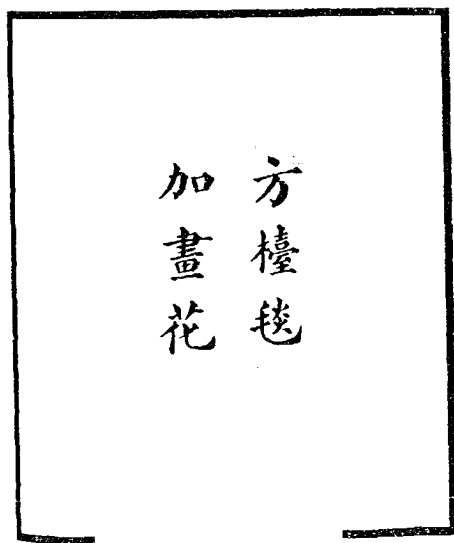 方檯毯
加畫花